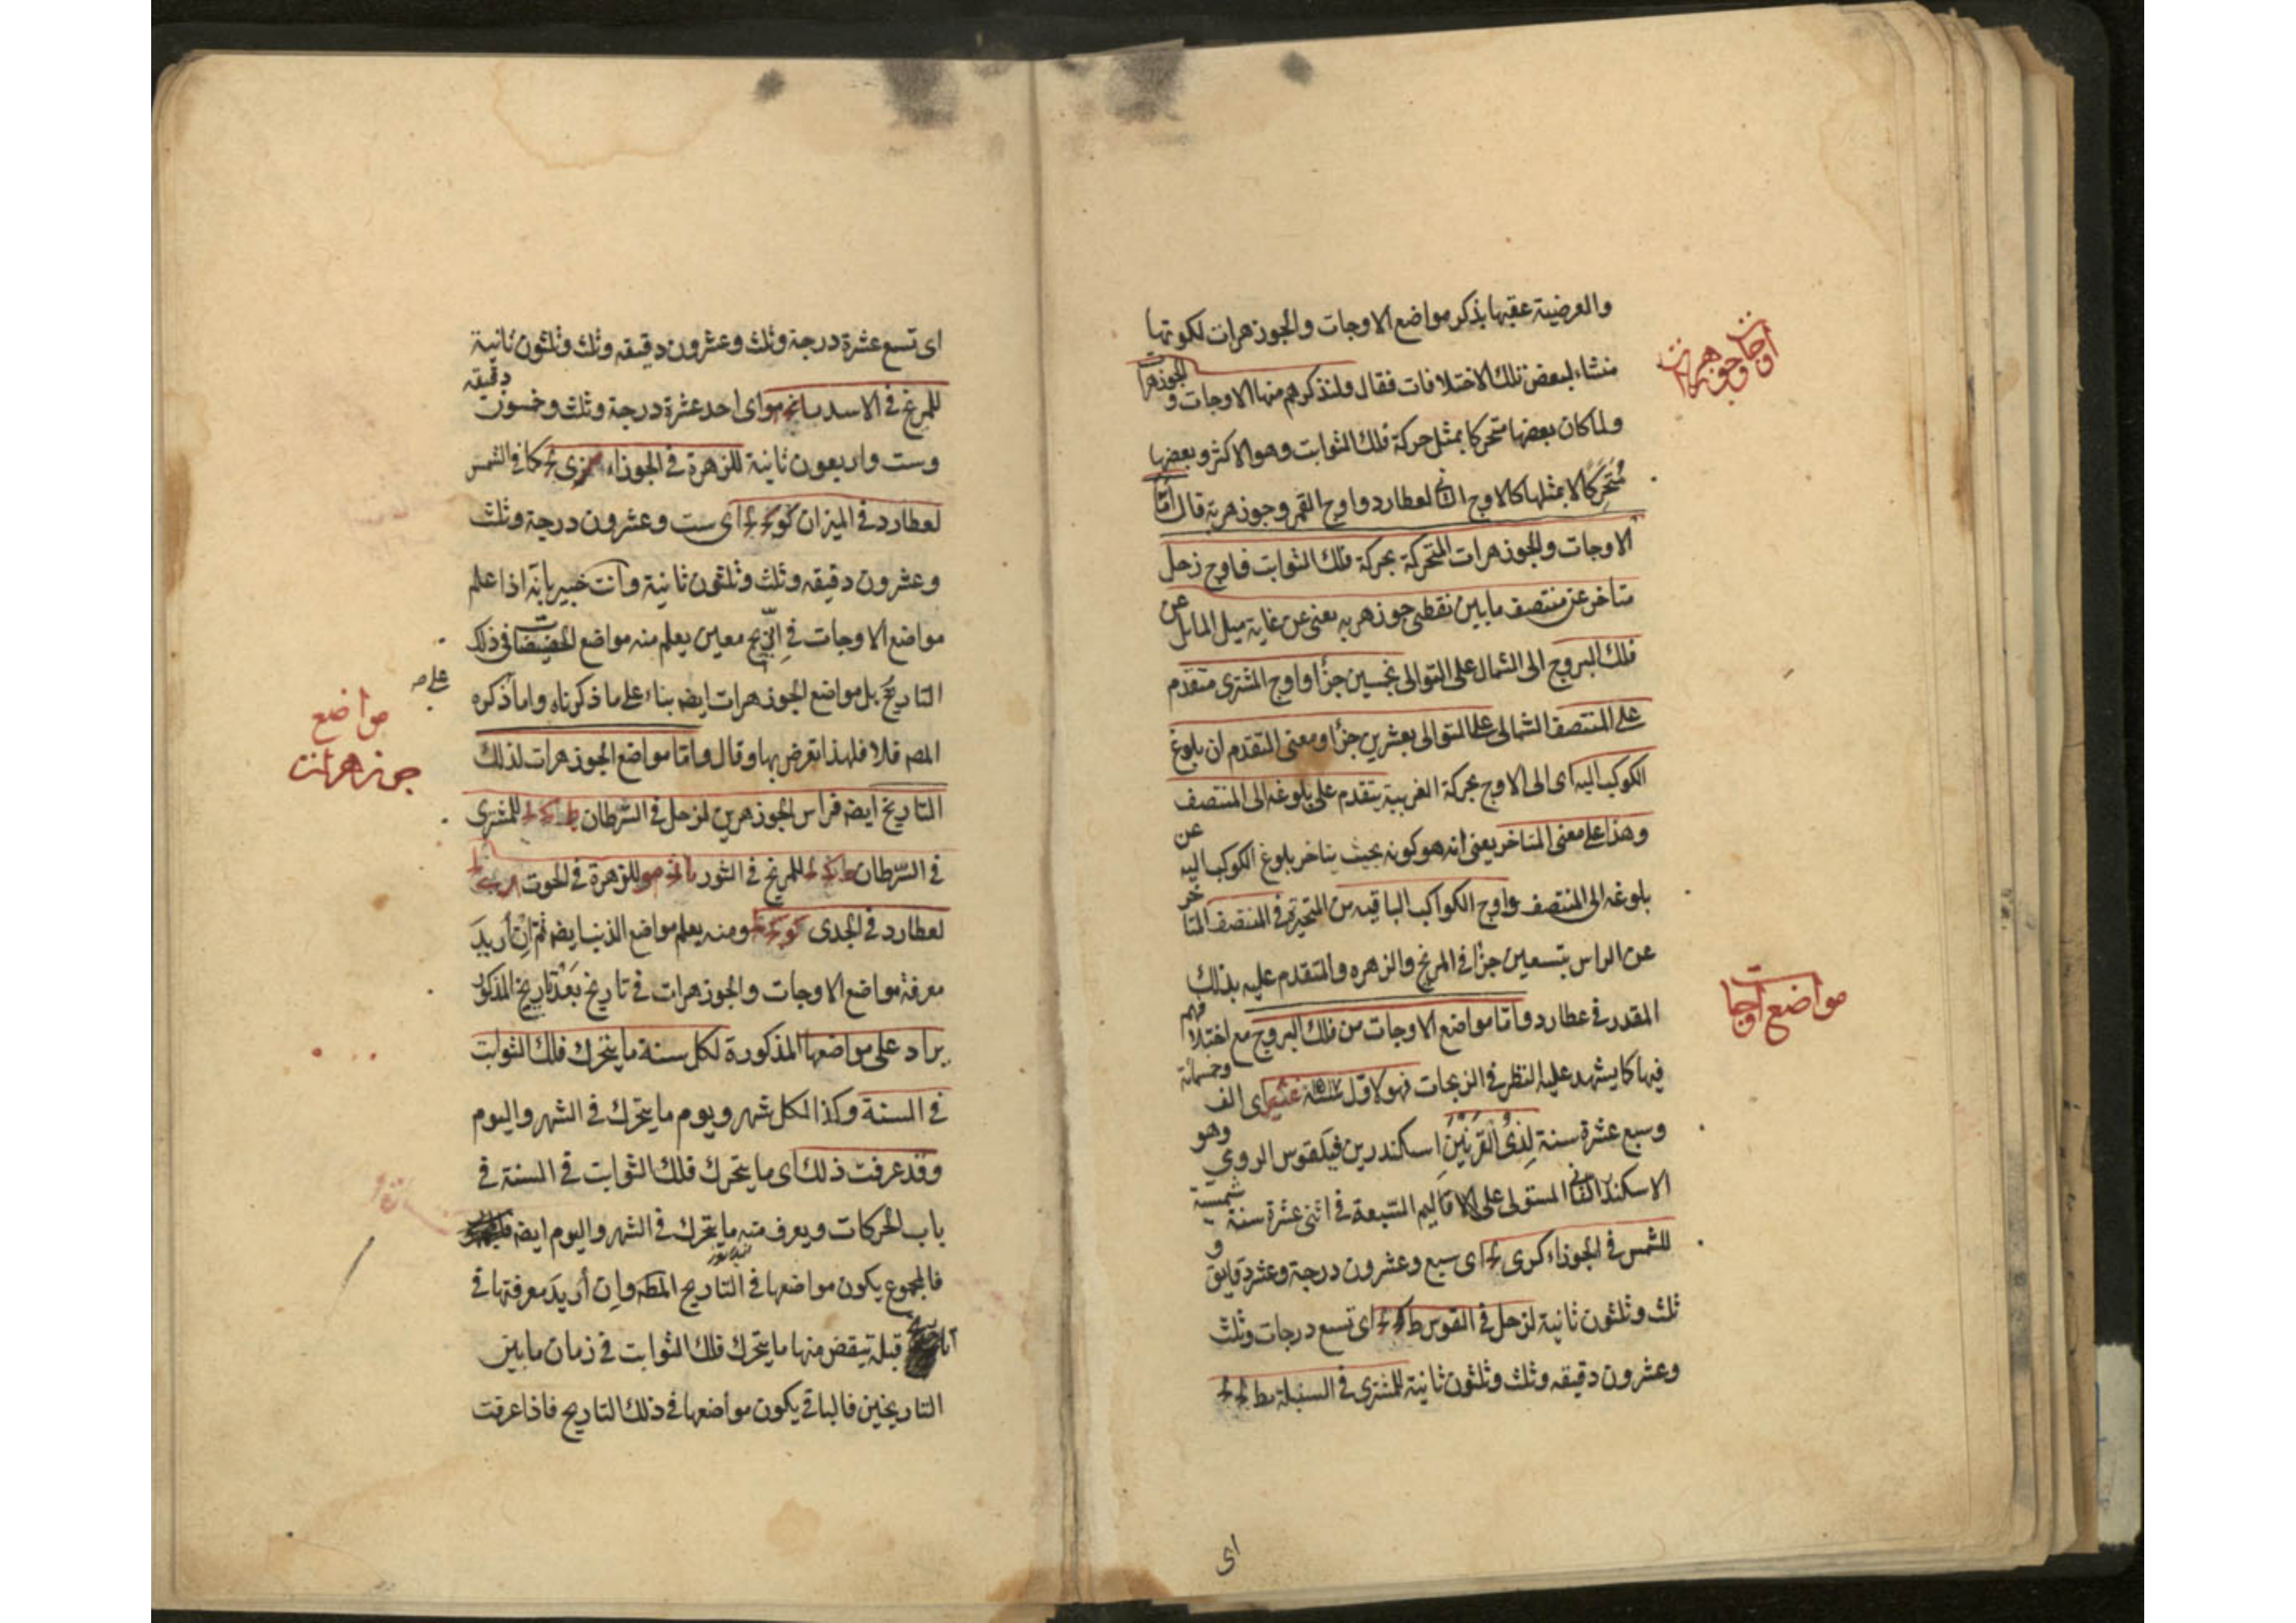 والعرضية عقبها بذكر مواضع الاوجات والجوزهرات لكونها
منشاء لبعض تلك الاختلافات فقال ولنذكرهم منها الاوجات والجوزهرات
ولما كان بعضها متحركا بمثل حركة فلك الثوابت وهو الاكثر وبعضها
متحركا لا بمثلها كالاوج الثانى لعطارد واوج القمر وجوزهريه قال اما
الاوجات والجوزهرات المتحركة بحركة فلك الثوابت فاوج زحل
متاخر عن منتصف ما بين نقطتى جوزهريه يعنى عن غاية ميل المائل عن
فلك البروج الى الشمال على التوالى بخمسين جزأ واوج المشترى متقدم
على المنتصف الشمالى على التوالى بعشرين جزأ ومعنى التقدم ان بلوغ
الكوكب اليه اى الى الاوج بحركة الغربية يتقدم على بلوغه الى المنتصف
وهذا على معنى المتاخر يعنى انه هو كونه بحيث يتاخر بلوغ الكوكب اليه عن
بلوغه الى المنتصف واوج الكواكب الباقيه من المتحيرة فى المنتصف المتاخر
عن الراس بتسعين جزأ فى المريخ والزهره والمتقدم عليه بذلك
المقدر فى عطارد واما مواضع الاوجات من فلك البروج مع اختلافهم
فيها كا يشهد عليه النظر فى الزيجات فهو لاول سنة اى الف وخسمائة
وسبع عشرة سنة لذى القرنين اسكندر بن فيلقوس الرومى وهو
الاسكندر الثانى المستولى على الاقاليم السبعة فى اثنى عشرة سنة شمسية
للشمس فى الجوزاء كرى اى سبع وعشرون درجة وعشر دقايق و
ثلث وثلثون ثانية لزحل فى القوس ط اى تسع درجات وثلث
وعشرون دقيقه وثلث وثلثون ثانية للمشترى فى السنبلة يط
اى
اوجات وجوزهرات
مواضع اوجات
اى تسع عشرة درجة وثلث وعشرون دقيقه وثلث وثلثون ثانية
للمريخ فى الاسد يا نج مو اى احد عشرة درجة وثلث وخسون دقيقه
وست واربعون ثانية للزهرة فى الجوزاء كا فى الشمس
لعطارد فى الميزان كو اى ست وعشرون درجة وثلث
وعشرون دقيقه وثلث وثلثون ثانية وانت خبير بانه اذا علم
مواضع الاوجات فى تاريخ معين يعلم منه مواضع الحضيضات فى ذلك
التاريخ بل مواضع الجوزهرات ايضه بناء على ما ذكرناه واما ذكره
المصه فلا فلهذا تعرض بها وقال واما مواضع الجوزهرات لذلك
التاريخ ايضه فراس الجوزهرين لزحل فى السرطان للمشترى
فى السرطان للمريخ فى الثور للزهرة فى الحوت
لعطارد فى الجدى ومنه يعلم مواضع الذنب ايضه ثم ان اريد
معرفة مواضع الاوجات والجوزهرات فى تاريخ بعد تاريخ المذكور
يراد على مواضعها المذكورة لكل سنة ما يتحرك فلك الثوابت
فى السنة وكذا لكل شهر ويوم ما يتحرك فى الشهر واليوم
وقد عرفت ذلك اى ما يتحرك فلك الثوابت فى السنة فى
باب الحركات ويعرف منه ما يتحرك فى الشهر واليوم ايضه
فالمجموع يكون مواضعها فى التاريخ المطه وان أريد معرفتها فى
تاريخ قبله ينقض منها ما يتحرك فلك الثوابت فى زمان ما بين
التاريخين فالباقى يكون مواضعها فى ذلك التاريخ فاذا عرفت
مواضع
جوزهرات